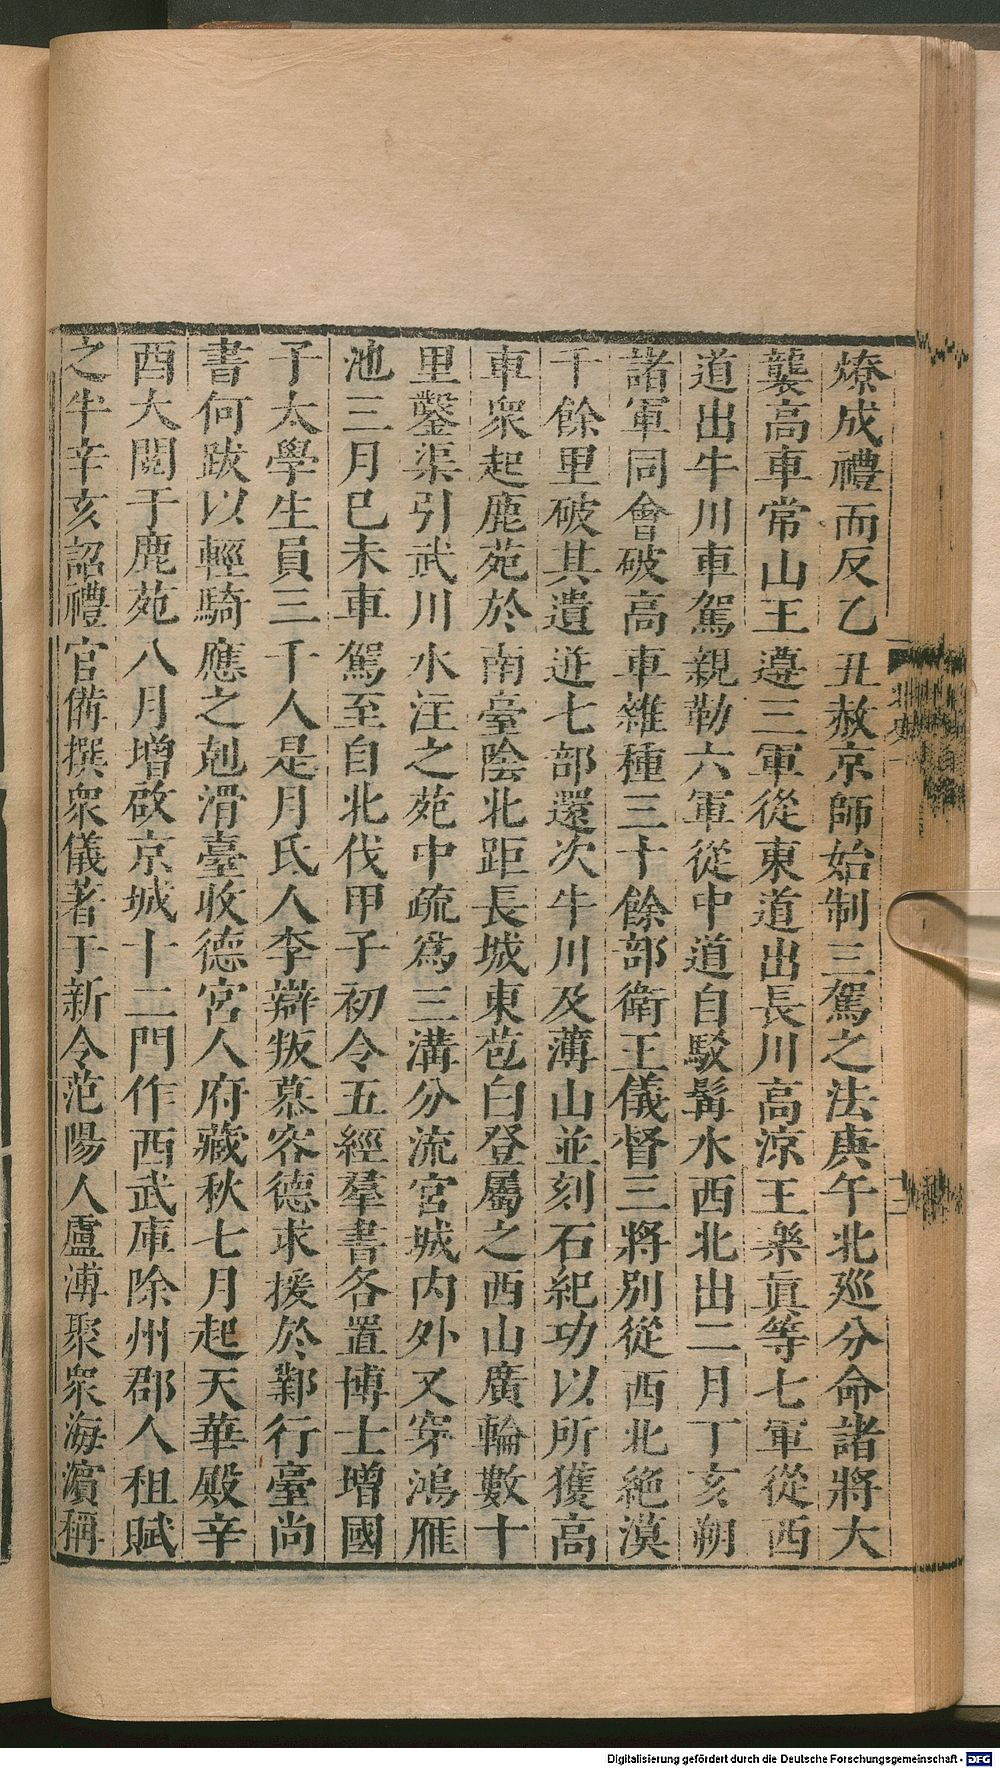 燎成禮而反乙丑赦京師始制三駕之法庚午北巡分命諸將大
襲高車常山王遵三軍從東道出長川高涼王樂眞等七軍從西
道出牛川車駕親勒六軍從中道自駮髯水西北出二月丁亥朔
諸軍同會破高車雜種三十餘部衛王儀督三將別從西北絶漠
千餘里破其遺迸七部還次牛川及薄山並刻石紀功以所獲高
車衆起鹿苑於南臺陰北距長城東苞白登屬之西山廣輪數十
里鑿渠引武川水注之苑中疏爲三溝分流宮城内外又穿鴻雁
池三月巳未車駕至自北伐甲子初令五經羣書各置博士增國
子太學生員三千人是月氐人李辯叛慕容德求援於鄴行臺尚
書何跋以輕騎應之剋滑臺收德宮人府藏秋七月起天華殿辛
酉大閱于鹿苑八月增啟京城十二門作西武庫除州郡人租賦
之半辛亥詔禮官備撰衆儀著于新令范陽人盧溥聚衆海濱稱
北史
Digitalisierung gefördert durch die Deutsche Forschungsgemeinschaft - DFG